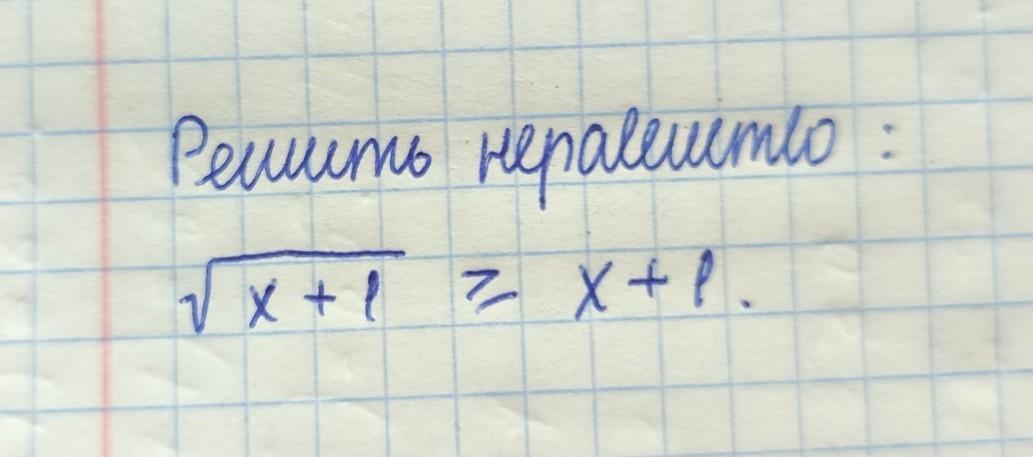 Решить неравенство:
√(x + 1) ≥ x + 1.